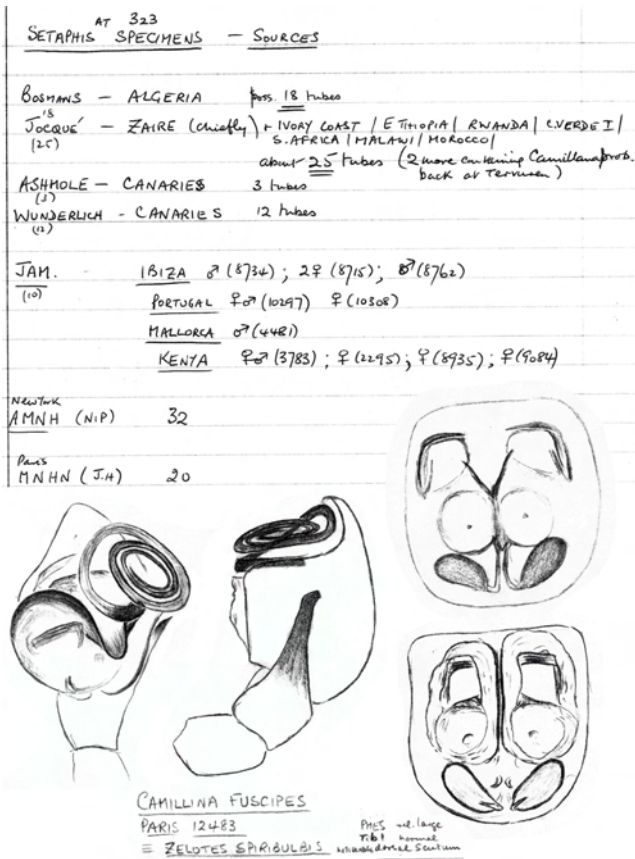 AT 323
SETAPHIS SPECIMENS — SOURCES
BOSMANS — ALGERIA poss. 18 tubes
18
JOCQUÉ — ZAIRE (chiefly) + IVORY COAST / ETHIOPIA / RWANDA / C. VERDE I /
(25) S. AFRICA / MALAWI / MOROCCO /
about 25 tubes (2 more containing Camillana prob.
back at Tervuren)
ASHMOLE — CANARIES 3 tubes
(3)
WUNDERLICH - CANARIES 12 tubes
(12)
JAM. IBIZA ♂ (8734) ; 2♀ (8715) ; ♂ (8762)
(10)
PORTUGAL ♀♂ (10297) ♀ (10308)
MALLORCA ♂ (4481)
KENYA ♀♂ (3783) ; ♀ (2295) ; ♀ (8935) ; ♀ (9084)
New York
AMNH (NIP) 32
Paris
MNHN (J.H) 20
CAMILLINA FUSCIPES
PARIS 12483
≡ ZELOTES SPIRIBULBIS
PMES rel. large
Tib 1 normal
dorsal Scutum